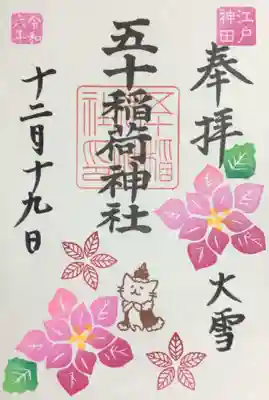 江戸
神田
奉拝
大雪
五十稲荷神社
令和
六年
十二月十九日